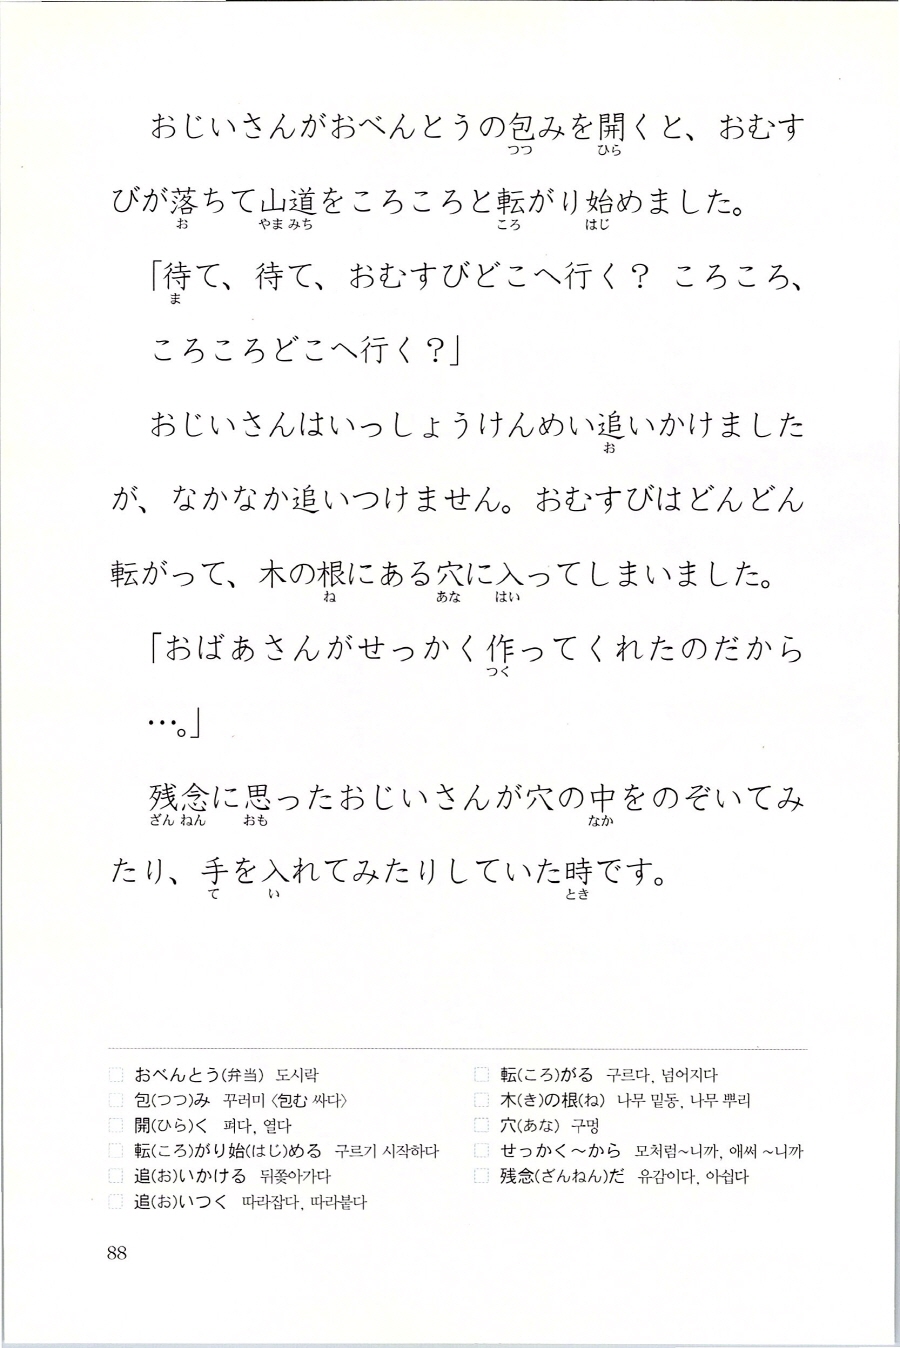 おじいさんがおべんとうの包みを開くと、おむす
つつ ひら
びが落ちて山道をころころと転がり始めました。
お やま みち ころ はじ
「待て、待て、おむすびどこへ行く？ ころころ、
ま
ころころどこへ行く？」
おじいさんはいっしょうけんめい追いかけました
お
が、なかなか追いつけません。おむすびはどんどん
転がって、木の根にある穴に入ってしまいました。
ね あな はい
「おばあさんがせっかく作ってくれたのだから
つく
…。」
残念に思ったおじいさんが穴の中をのぞいてみ
ざん ねん おも なか
たり、手を入れてみたりしていた時です。
て い とき
おべんとう(弁当) 도시락
包(つつ)み 꾸러미〈包む 싸다〉
開(ひら)く 펴다, 열다
転(ころ)がり始(はじ)める 구르기 시작하다
追(お)いかける 뒤쫓아가다
追(お)いつく 따라잡다, 따라붙다
転(ころ)がる 구르다, 넘어지다
木(き)の根(ね) 나무 밑동, 나무 뿌리
穴(あな) 구멍
せっかく～から 모처럼~니까, 애써 ~니까
残念(ざんねん)だ 유감이다, 아쉽다
88